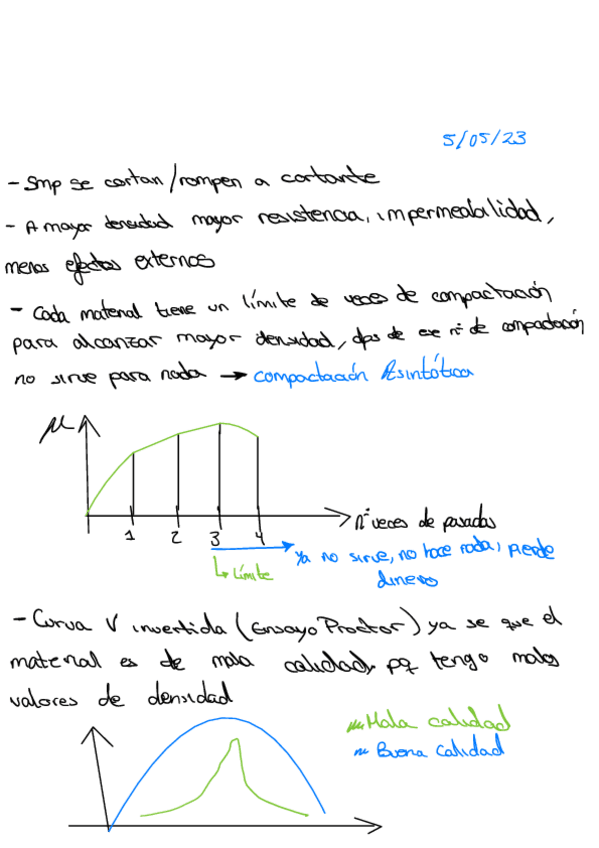 5/05/23
- Smp se cortan/rompen a cortante
- A mayor densidad mayor resistencia, impermeabilidad,
menos efectos externos
- Cada material tiene un límite de veces de compactación
para alcanzar mayor densidad, dps de ese nº de compactación
no sirve para nada → compactación Asintótica
μ
nº veces de pasadas
1 2 3 4
Ya no sirve, no hace nada, pierde
dinero
↳ Límite
- Curva V invertida (Ensayo Proctor) ya se que el
material es de mala calidad, pq tengo malos
valores de densidad
Mala calidad
Buena Calidad